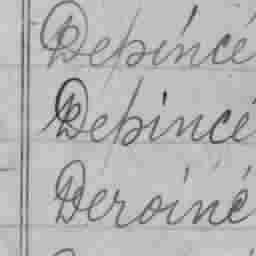 Depincé
Depincé
Deroiné